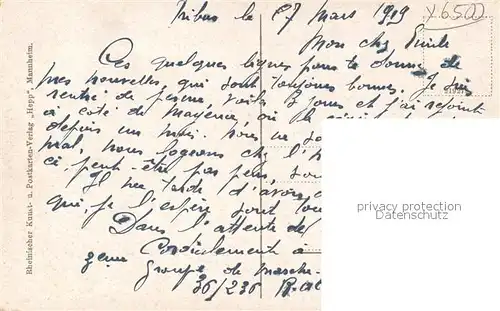 le 27 mars 1919
X6502
Mon cher Emile
Ces quelques lignes pour te donner de
mes nouvelles, qui sont toujours bonnes. Je suis
rentré de perme, voilà 3 jours et j'ai rejoint
à côté de Mayence, où le
depuis un mois. nous ne
mal, nous logeons chez l'h
ci peut-être pas pour,
Il me tarde d'avoir
qui, je l'espère sont
Dans l'attente de
Cordialement à
3eme Groupe de marche
36/236 R.at
Rheinischer Kunst- u. Postkarten-Verlag „Hepp", Mannheim.
privacy protection
Datenschutz